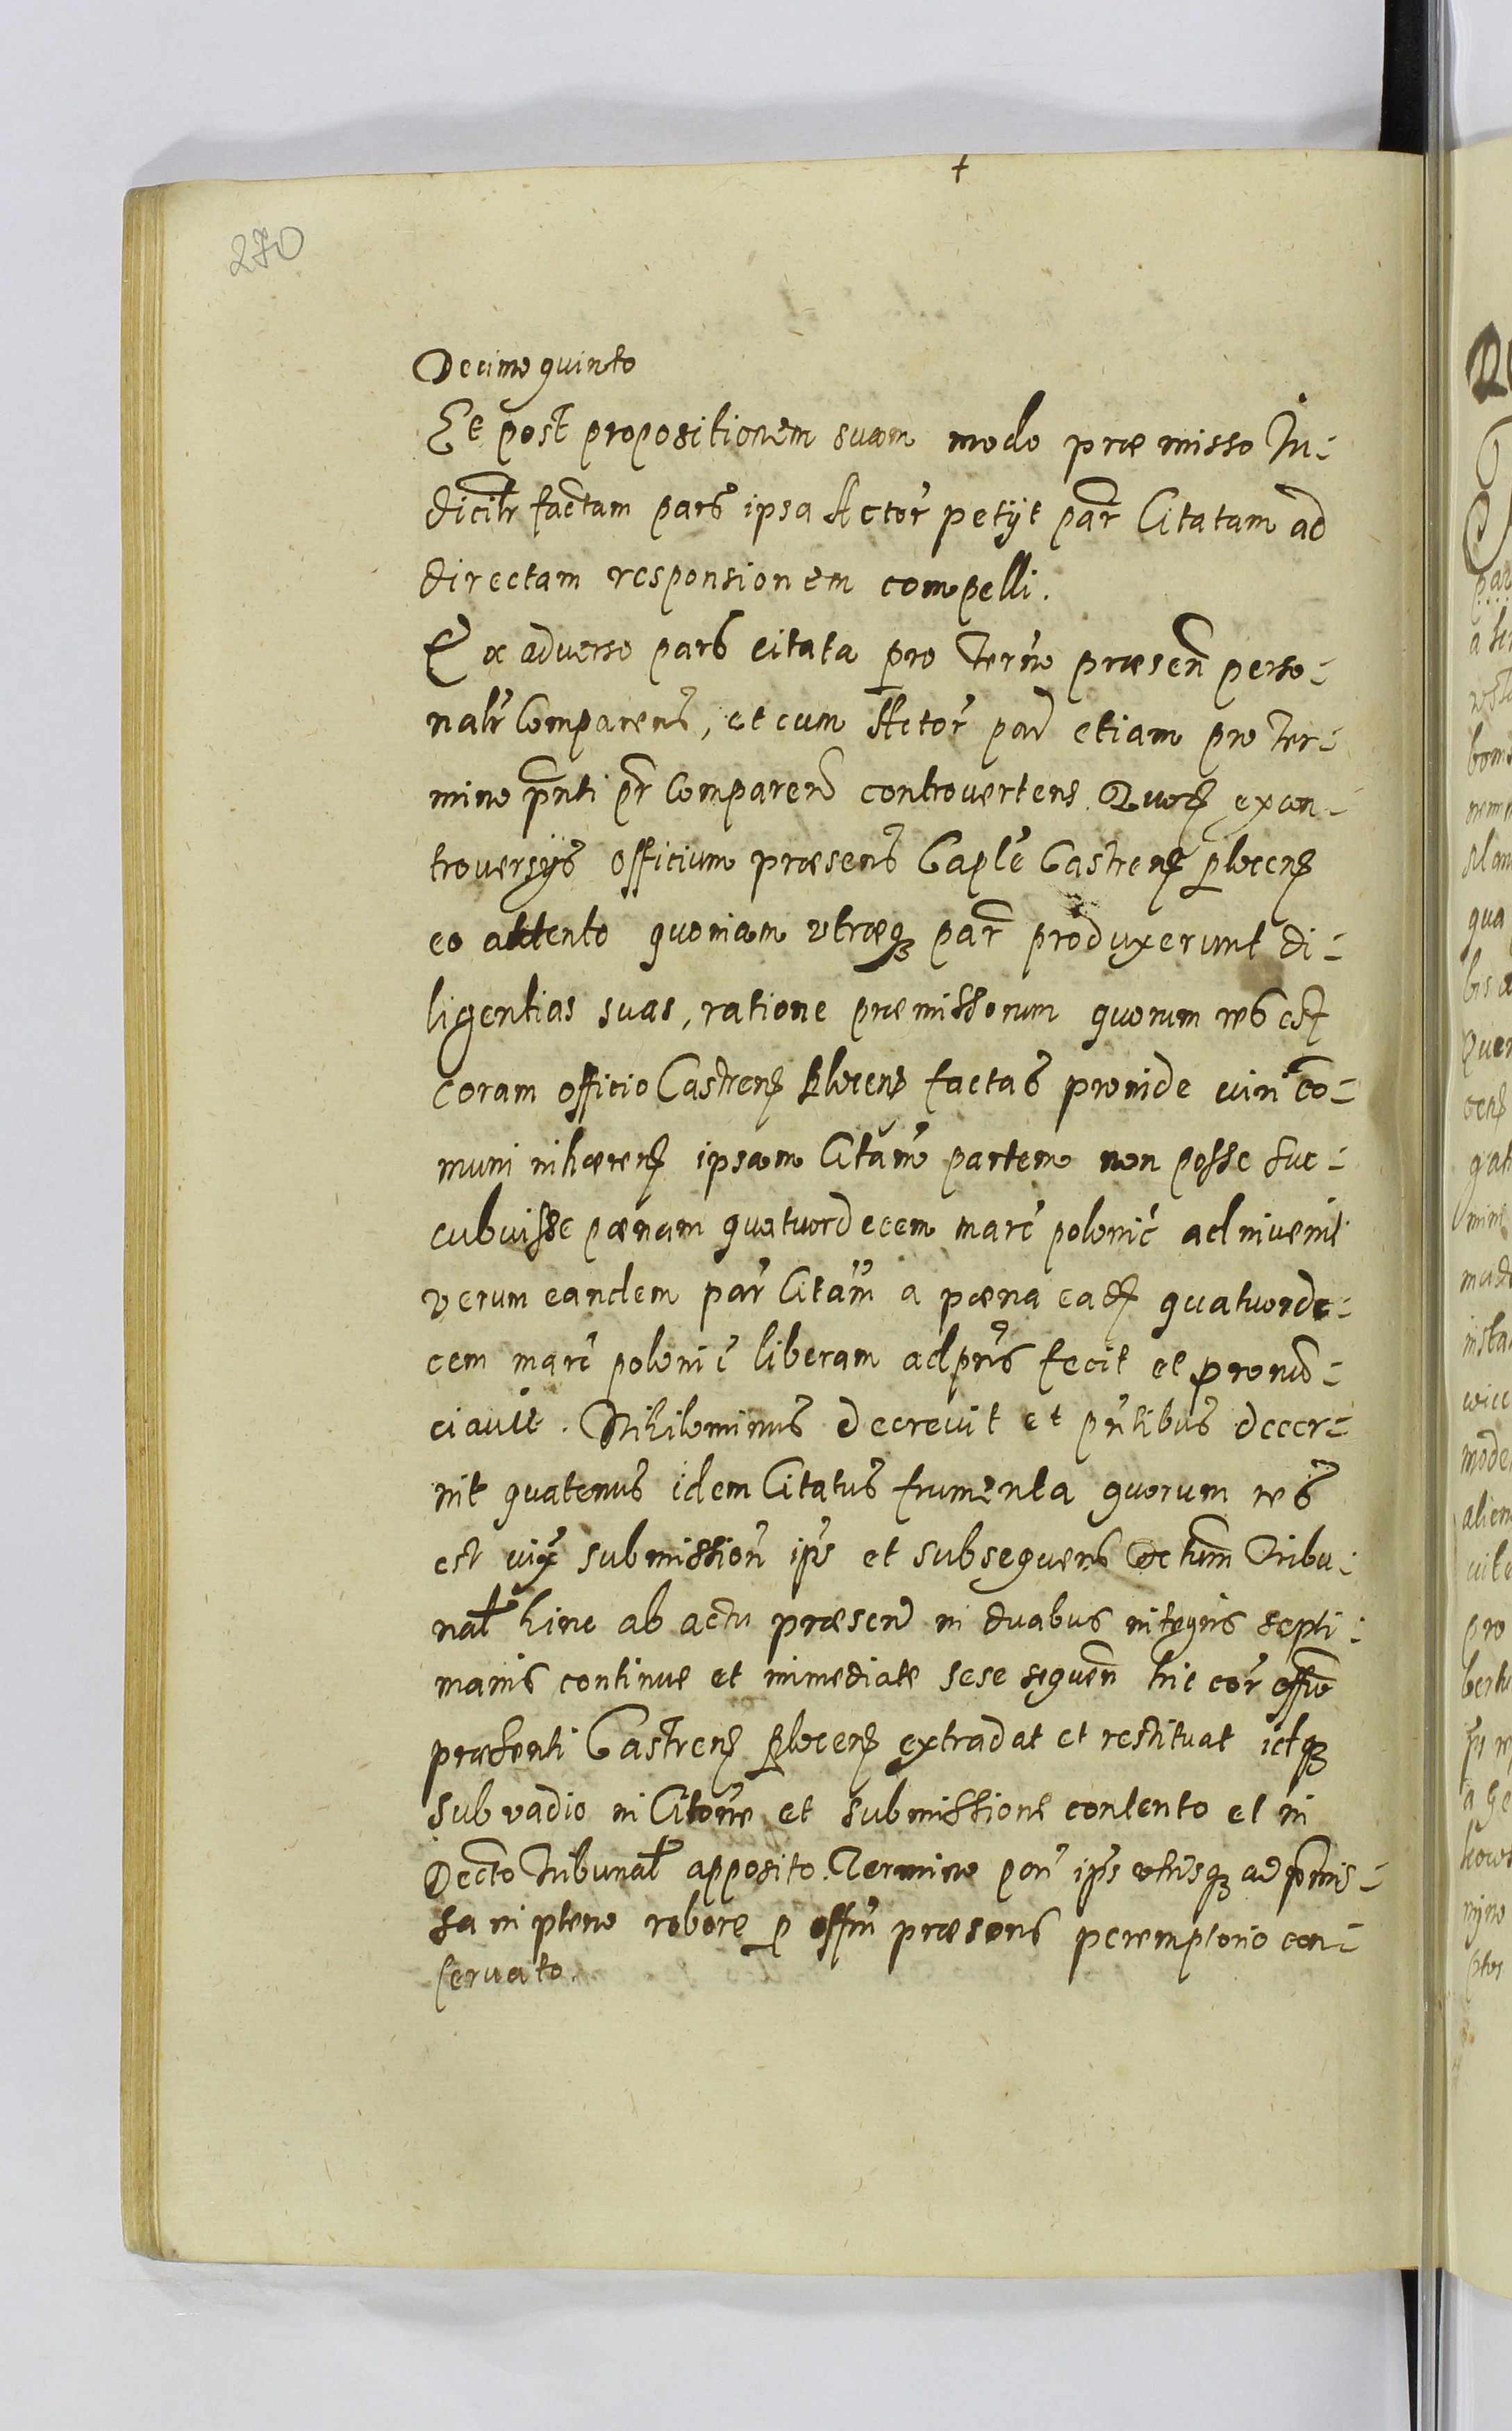 +
270
Decimoquinto
Et post propositionem suam modo præmisso Iu-
diciłr factam pars ipsa Actor petijt par Citatam ad
directam responsionem compelli.
Ex adverso pars citata pro Termo præsen perso-
nalr Comparens, et cum Actor par etiam pro Ter-
mino pnti pr Comparen controvertens. Quorq ex con-
troversijs officium præsens Caplē Castrenq plocenq
eo attento quoniam utræq par produxerunt di-
ligentias suas, ratione præmissorum quorum res est
coram officio Castrenq Plocenq factas proinde iuri co-
muni inhærenq ipsam Citatam partem non posse suc-
cubuisse pænam quatuordecem marc polonic adinvenit
verum eandem par Citatam a pæna eadq quatuorde-
cem marc polonic liberam adpns fecit et pronun-
ciavit. Nihilominus decrevit et pntibus decer-
nit quatenus idem Citatus frumenta quorum res
est iuxq submission ips et subsequens Dectum Tribu-
nał hinc ab actu præsen in duabus integris septi-
manis continue et immediate sese sequen hic cor offio
præsenti Castrenq Plocenq extradat et restituat idq
sub vadio in Citone et submissione contento et in
Decto Tribunał apposito. Termino par ips utrisq ad prmis-
sa in pleno robore p offm præsens peremptorio con-
servato.